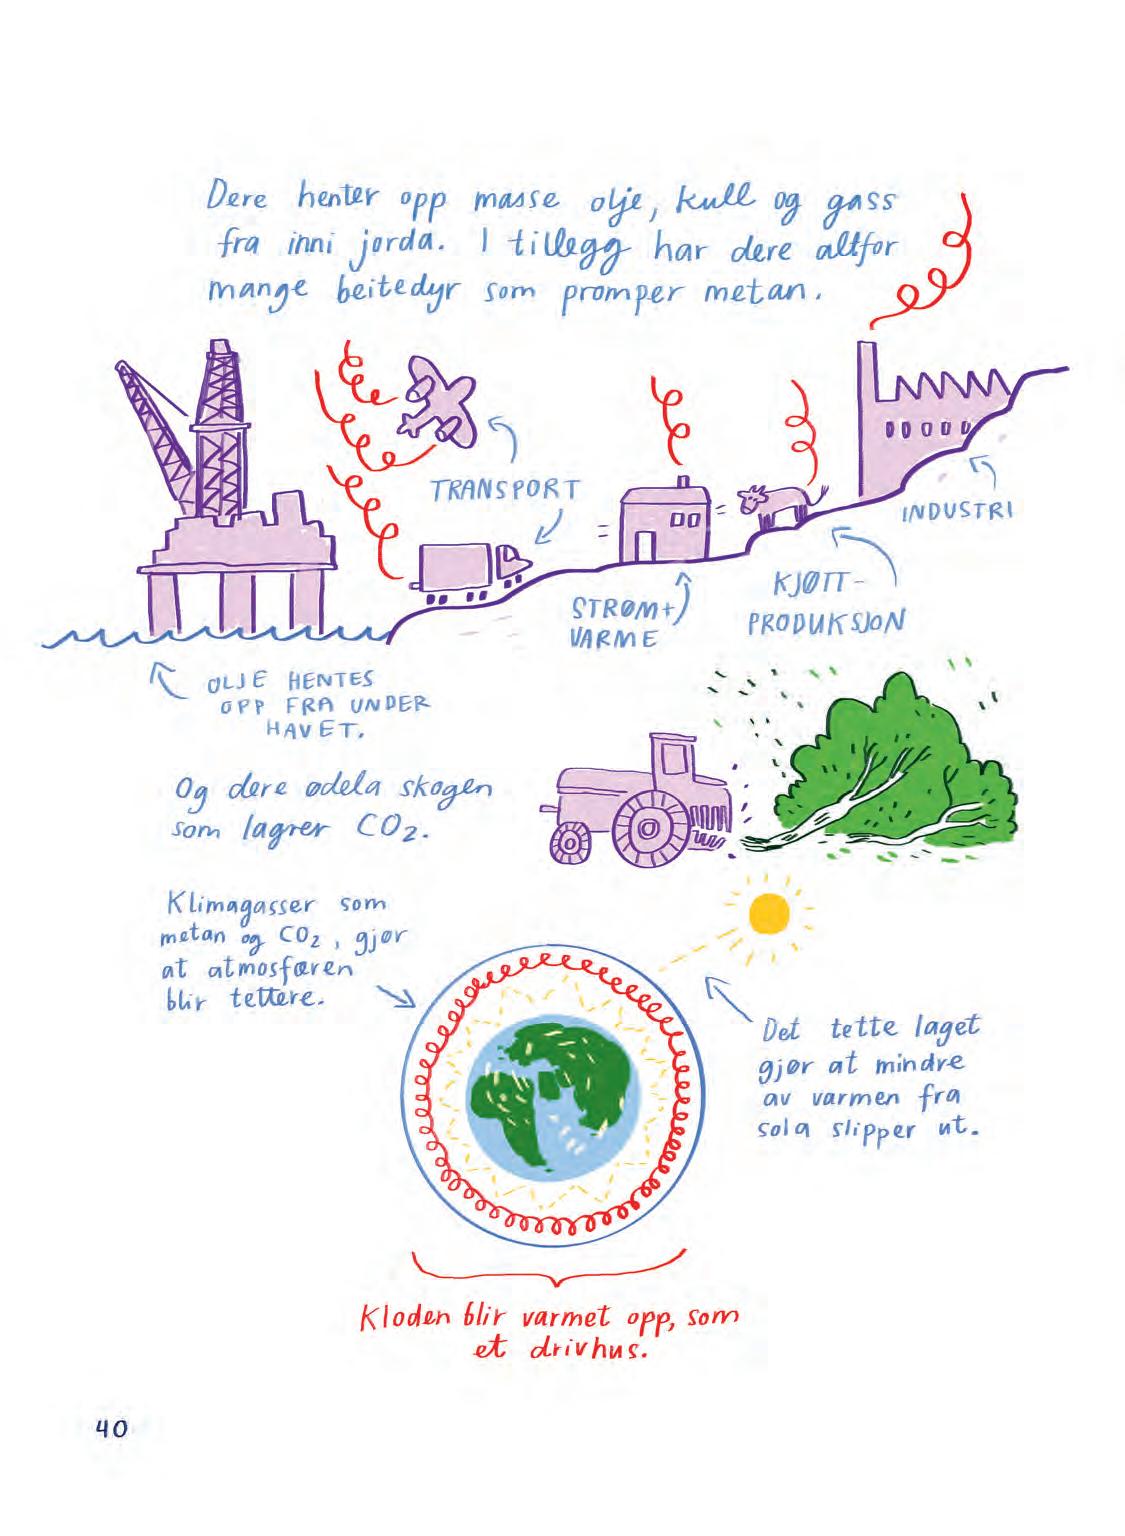 Dere henter opp masse olje, kull og gass
fra inni jorda. I tillegg har dere altfor
mange beitedyr som promper metan.
TRANSPORT
INDUSTRI
KJØTT-
PRODUKSJON
STRØM +
VARME
OLJE HENTES
OPP FRA UNDER
HAVET.
Og dere ødela skogen
som lagrer CO2.
Klimagasser som
metan og CO2, gjør
at atmosfæren
blir tettere.
Det tette laget
gjør at mindre
av varmen fra
sola slipper ut.
Kloden blir varmet opp, som
et drivhus.
40